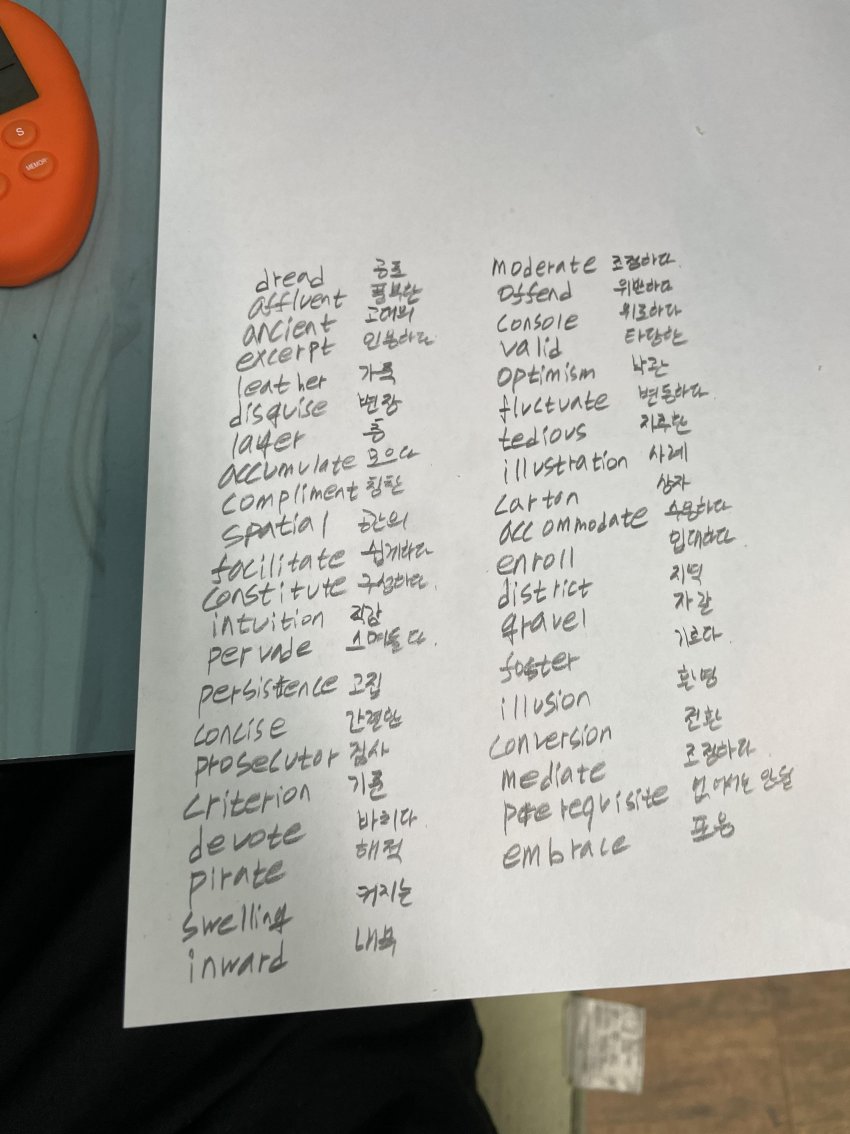 S
MEMORY
dread 공포
affluent 풍부한
ancient 고대의
excerpt 인용하다
leather 가죽
disguise 변장
layer 층
accumulate 모으다
compliment 칭찬
spatial 공간의
facilitate 쉽게하다
constitute 구성하다.
intuition 직감
pervade 스며들다.
persistence 고집
concise 간결한
prosecutor 검사
criterion 기준
devote 바치다.
pirate 해적
swelling 커지는
inward 내부
moderate 조절하다.
offend 위반하다
console 위로하다
valid 타당한
optimism 낙관
fluctuate 변동하다.
tedious 지루한
illustration 사례
carton 상자
accommodate 수용하다
enroll 입대하다.
district 지역
gravel 자갈
foster 기르다.
illusion 환영
conversion 전환
mediate 조정하다.
prerequisite 없어서는 안될
embrace 포옹